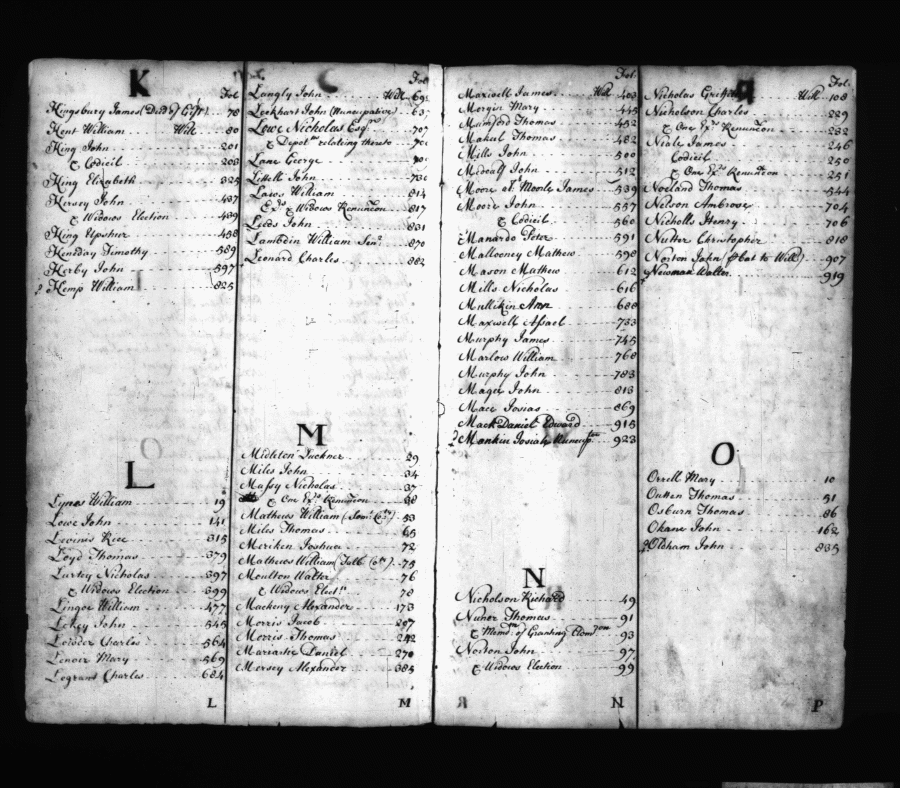 K
Fol
Kingsbury James (Deed of Gift) 78
Kent William Will 80
King John 201
& Codicil 203
King Elizabeth 325
Kersey John 437
& Widows Election 439
King Upshur 458
Keniday Timothy 589
Kerby John 597
Kemp William 825
L
Lynes William 19
Lowe John 141
Lewinis Rice 315
Loyd Thomas 379
Lurtey Nicholas 397
& Widows Election 399
Lingoe William 477
Lekey John 545
Leider Charles 564
Lenoir Mary 569
Legrans Charles 684
L
Fol
Langly John Will 69
Lockhart John (Nuncupative) 63
Lowe Nicholas Esqr. 707
& Depots. relating thereto 70
Lane George
Littell John 73
Laws William 814
Exs. & Widows Renuncon 817
Leeds John 831
Lambdin William Senr. 870
Leonard Charles 882
M
Midleton Luckner 29
Miles John 34
Massy Nicholas 37
& One Exrs. Renuntion 38
Mathews William (Som. Coty.) 53
Miles Thomas 65
Meriken Joshua 72
Mathews William (Talb. Coty.) 75
Moulton Walter 76
& Widows Electn. 78
Mackeny Alexander 173
Morris Jacob 207
Morris Thomas 242
Mariartie Daniel 270
Mersey Alexander 385
M
Fol
Maxwell James Will 403
Morgin Mary 445
Mumford Thomas 452
Makeul Thomas 482
Mills John 500
Midcalf John 512
Moore or Monle James 539
Moore John 557
& Codicil 560
Manardo Peter 591
Mallooney Mathew 598
Mason Mathew 612
Mills Nicholas 616
Mullikin Ann 688
Maxwell Assael 733
Murphy James 745
Marlow William 768
Murphy John 783
Mager John 813
Mace Josias 869
Mack Daniel Edward 915
Mankin Josiah Nuncupve 923
N
Nicholson Richard 49
Nuner Thomas 91
& Memdm. of Granting Admon 93
Norton John 97
& Widows Election 99
N
Fol
Nicholas Griffith Will 108
Nicholson Charles 229
& One Exrs. Renuncon 232
Niale James 246
Codicil 250
& One Exrs. Renuncon 251
Noeland Thomas 544
Nelson Ambrose 704
Nicholls Henry 706
Nutter Christopher 818
Norton John (Abat to Will) 907
Newman Walter 919
O
Orrell Mary 10
Outten Thomas 51
Osburn Thomas 86
Okane John 162
Oldham John 835
P